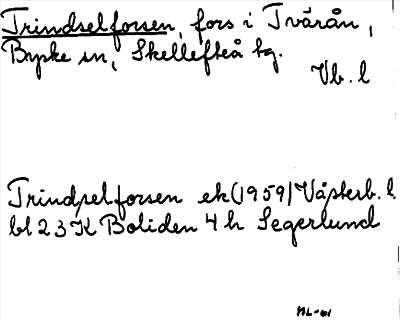 Trindselforsen, fors i Tvärån,
Byske sn, Skellefteå tg.
Vb. l
Trindselforsen ek (1959) Västerb. l.
bl 23 K Boliden 4 h Segerlund